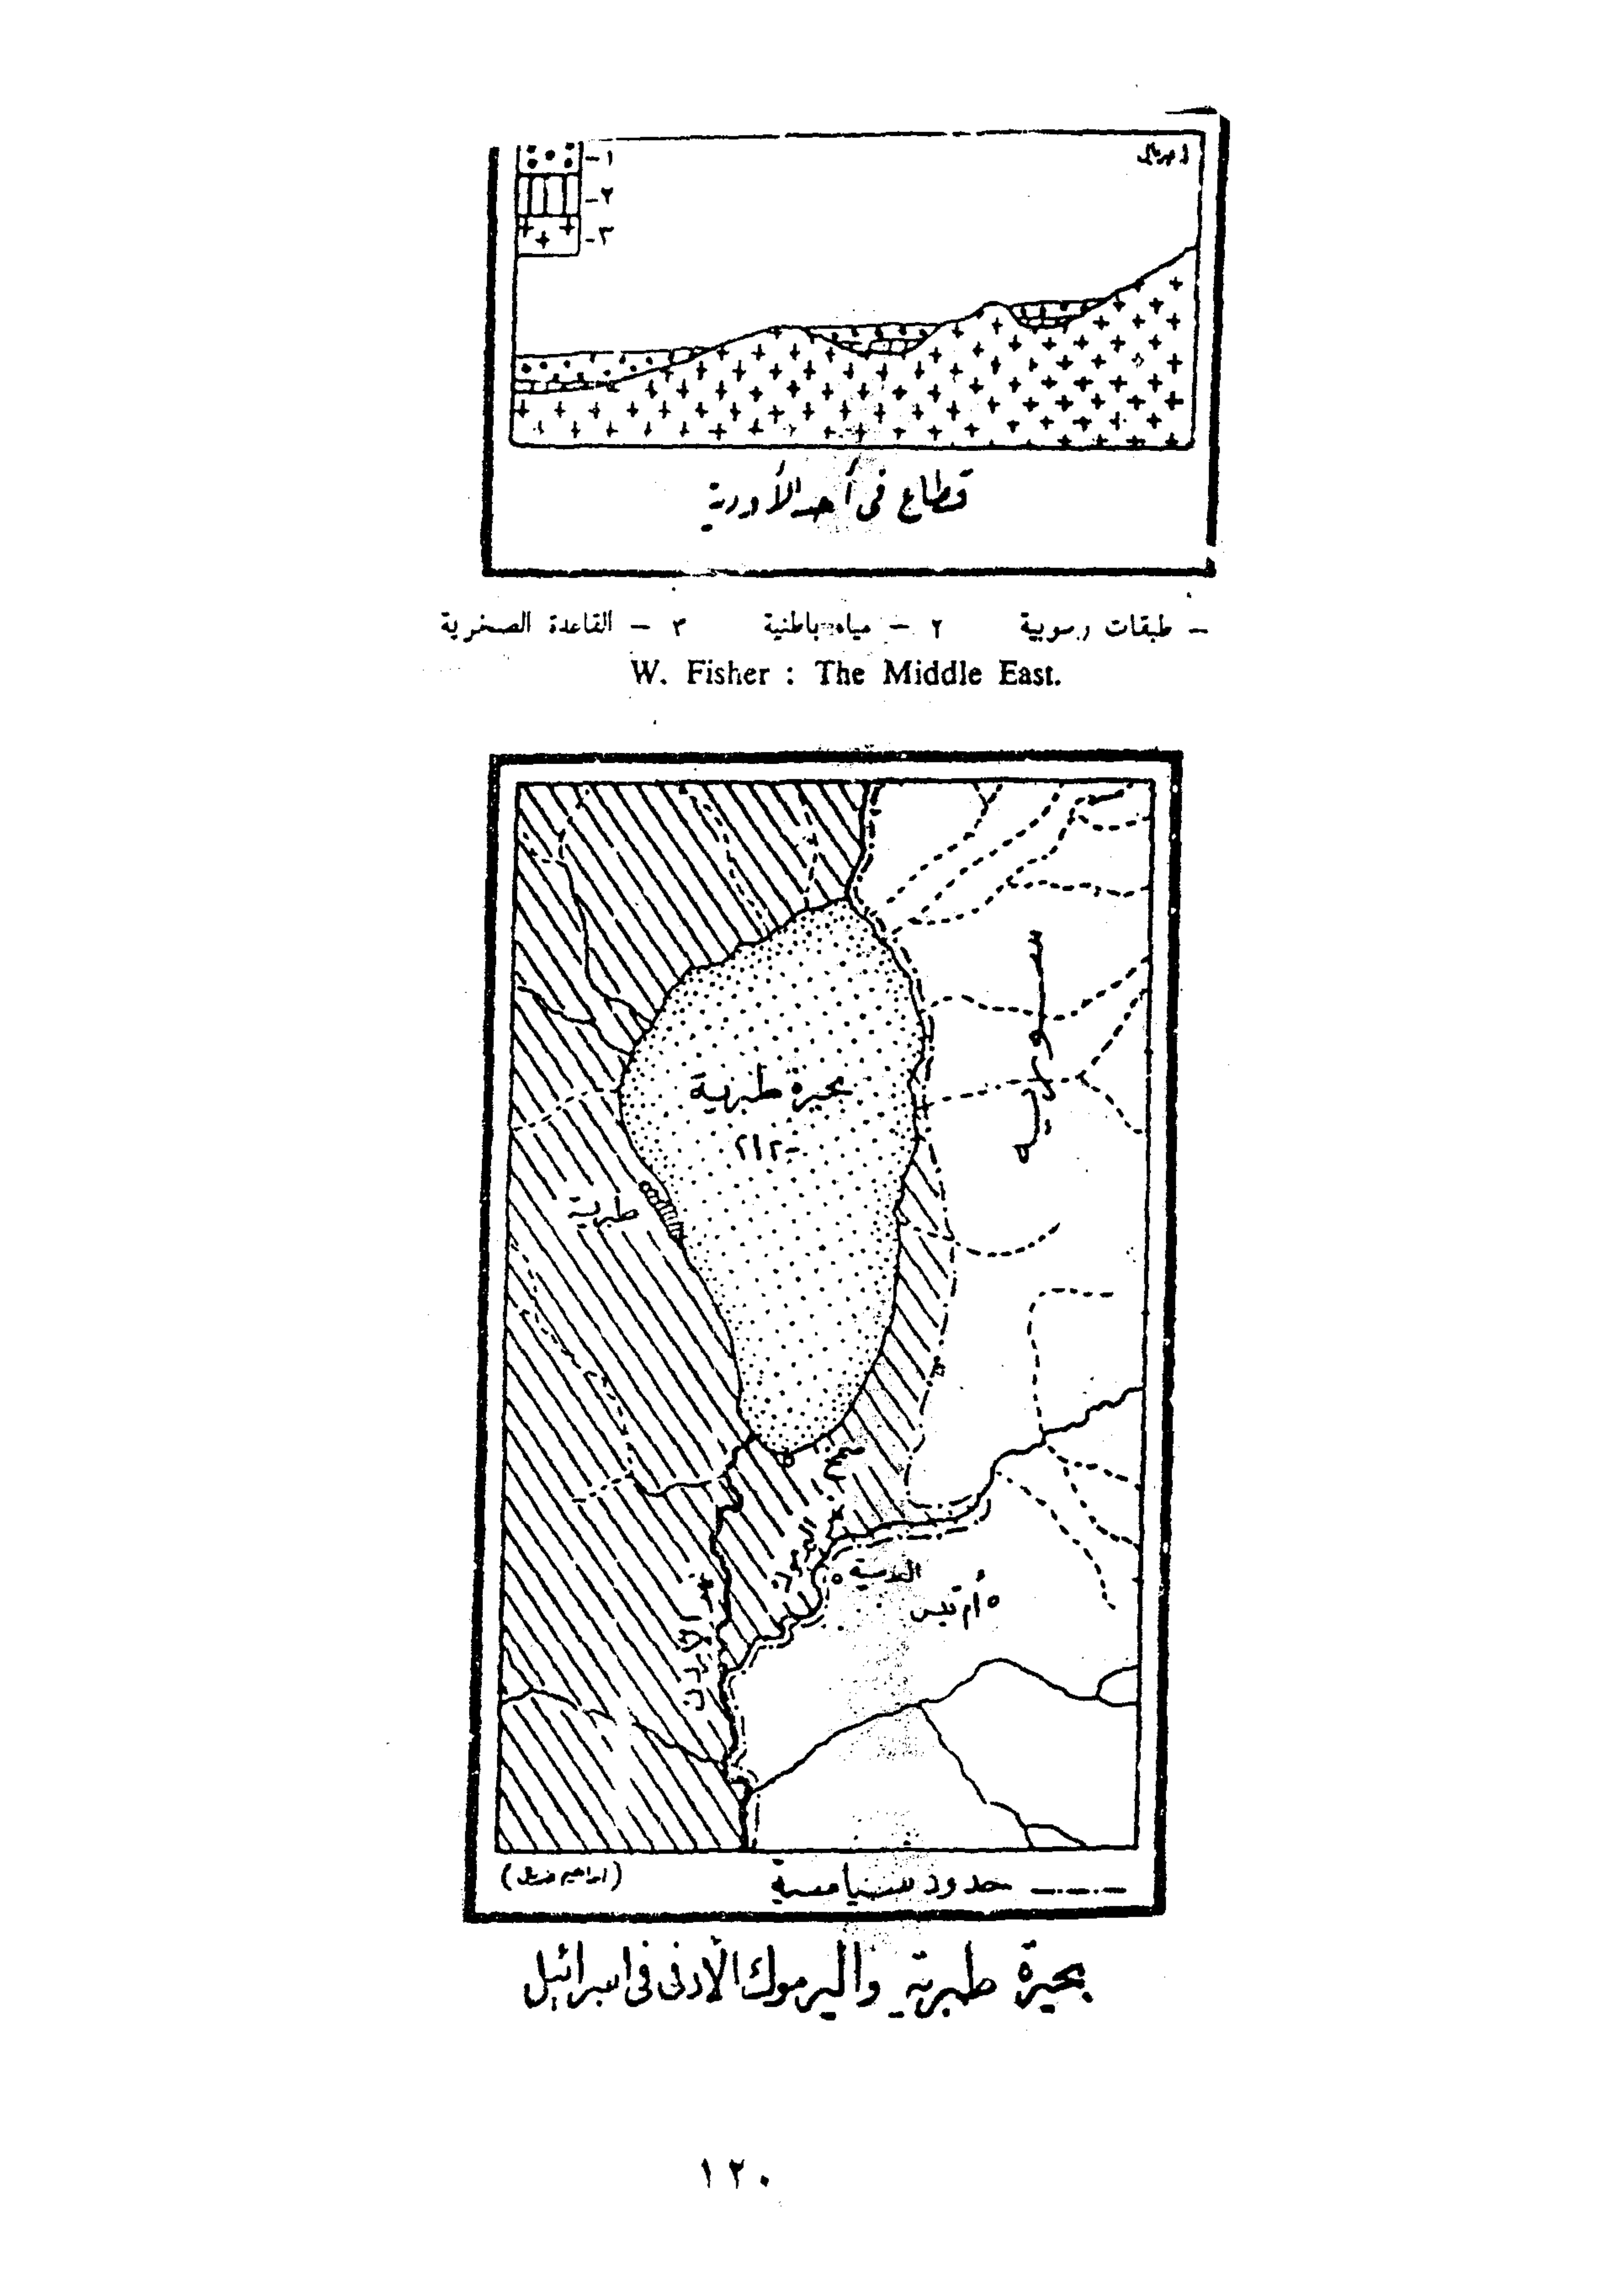 ١-
٢-
٣-
قطاع في أحد الأودية
– طبقات رسوبية ٢ – مياه باطنية ٣ – القاعدة الصخرية
W. Fisher : The Middle East.
سورية
بحيرة طبرية
٢١٢-
طبرية
سمخ
نهر اليرموك
العدسية
أم قيس
نهر الأردن
حدود سياسية
بحيرة طبرية واليرموك الأدنى في اسرائيل
١٢٠